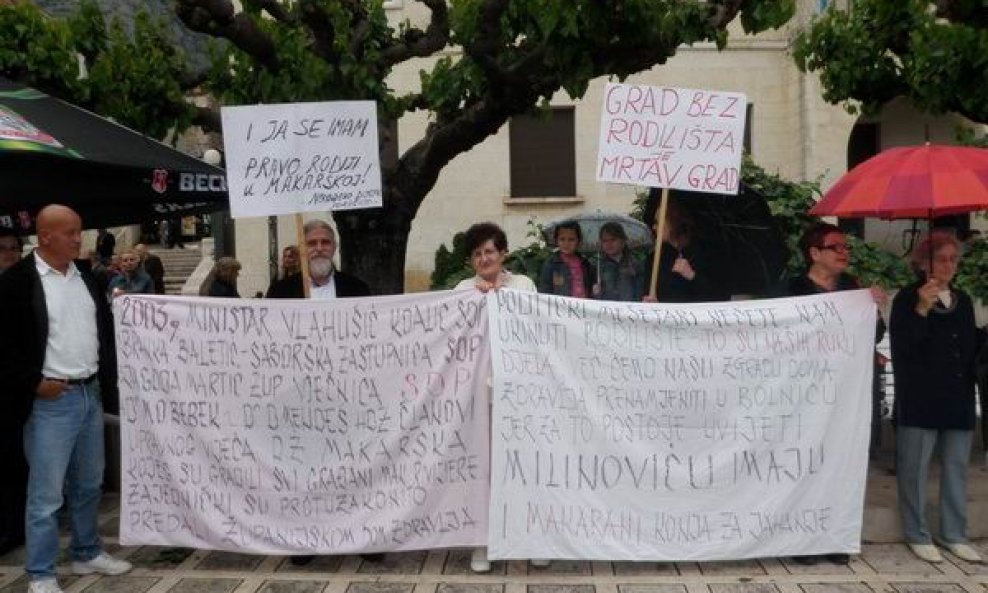 I JA SE IMAM
PRAVO RODITI
U MAKARSKOJ!
GRAD BEZ
RODILIŠTA
JE
MRTAV GRAD
BECK
2003.g. MINISTAR VLAHUŠIĆ KOALIC SDP
BRANKA BALETIĆ-SABORSKA ZASTUPNICA SDP
JAGODA MARTIĆ ŽUP VJEĆNICA SDP
BEBEK HDZ ČLANOVI
UPRAVNOG VIJEĆA DZ MAKARSKA
KOJES SU GRADILI SVI GRAĐANI MAK. RIVIJERE
ZAJEDNIČKI SU PROTUZAKONITO
PREDALI ŽUPANIJSKOM DOM ZDRAVLJA
POLITIČKI MEŠETARI NEĆETE NAM
UKINUTI RODILIŠTE-TO SU NAŠIH RUKU
DJELA VEĆ ĆEMO NAŠU ZGRADU DOMA
ZDRAVLJA PRENAMJENITI U BOLNICU
JER ZA TO POSTOJE UVIJETI
MILINOVIĆU IMAJU
I MAKARANI KONJA ZA JAHANJE